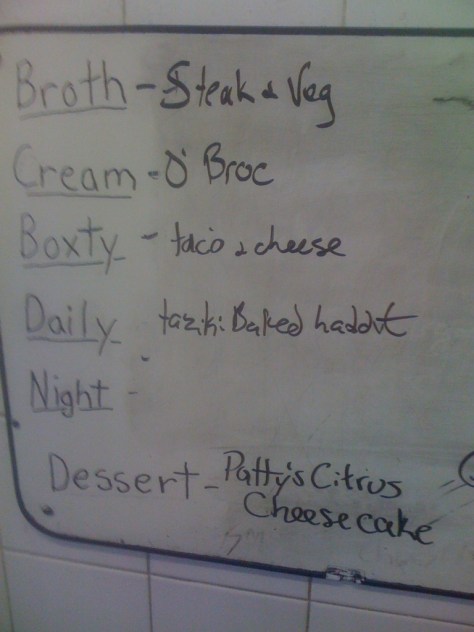 Broth - Steak & Veg
Cream - O' Broc
Boxty - taco & cheese
Daily taziki Baked
Night -
Dessert - Patty's Citrus
Cheesecake